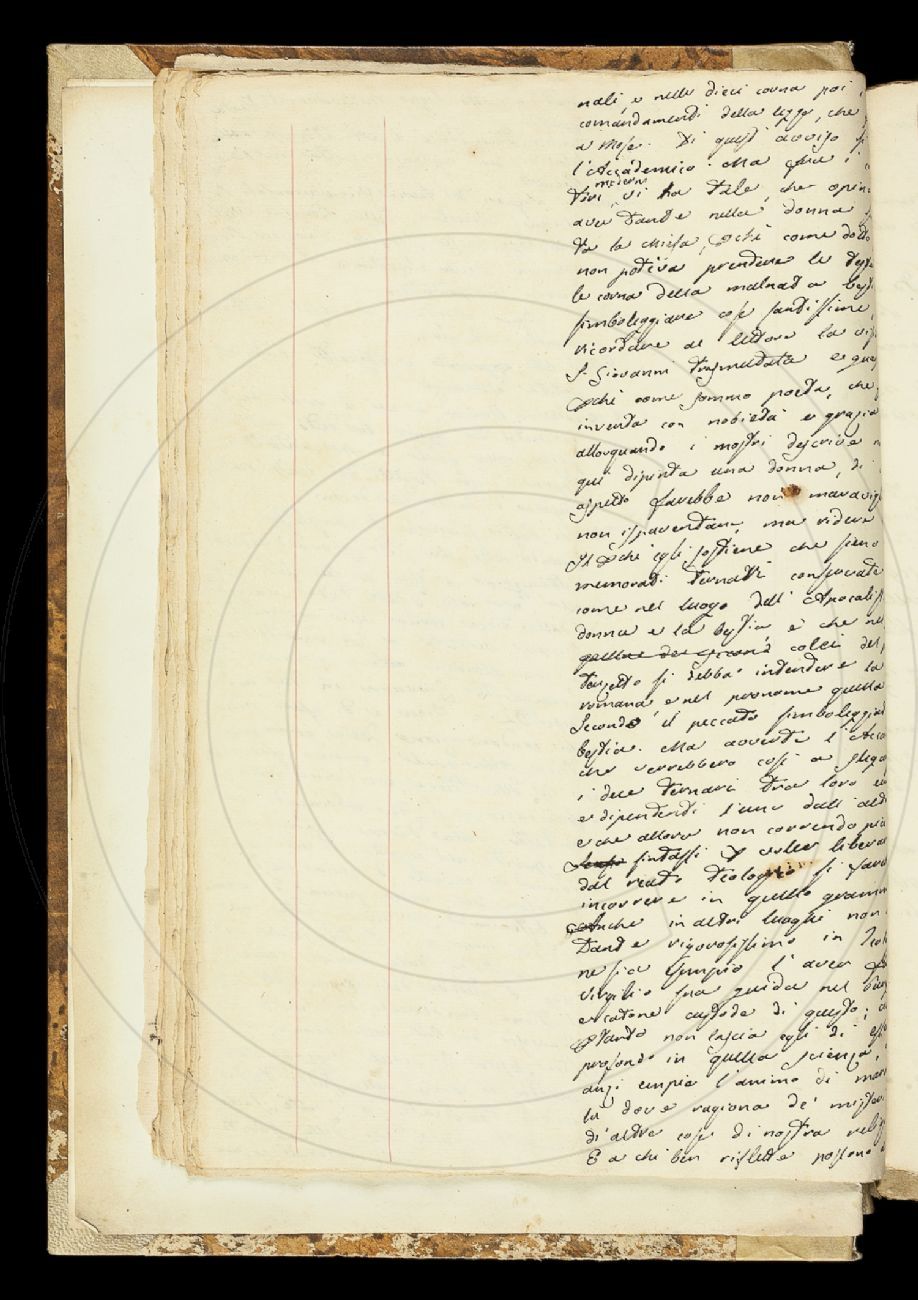 nali, e nelle dieci corna poi i
comandamenti della legge, che
a Mosè. Di questi avviso
l'Accademico. Ma qua
moderni
tivi, vi ha tale, che opin
aver Dante nella donna
ta la Chiesa, pchè come dotto
non poteva prendere le teste
le corna della malnata besti
simboleggiare cose santissime,
ricordare al lettore la visi
S. Giovanni trasmutata e
pchè come sommo poeta, che
inventa con nobiltà e grazia
allorquando i mostri descrive
qui dipinta una donna, di
aspetto sarebbe non maravigl
non ispaventare, ma ridere
Il pchè egli sostiene che sieno
memorati ternarj consecrati
come nel luogo dell'Apocaliss
donna e la bestia è che nel
colei del
terzetto si debba intendere la
romana e nel pronome quella
Secondo il peccato simboleggiat
bestia. Ma avverte l'Acca
che verrebbero così a slega
i due ternari tra loro
e dipendenti l'uno dall'alt
e che allora non correndo più
sintassi p voler liberar
dal reato teologico si fare
incorrere in quello gramm
Anche in altri luoghi non
Dante rigorosissimo in Teol
ne sia esempio l'aver
Virgilio sua guida nel
e Catone custode di questo;
ptanto non lascia egli di ess
profondo in quella scienza,
anzi empie l'animo di mar
là dove ragiona de' misteri
di altre cose di nostra reli
E a chi ben riflette possono